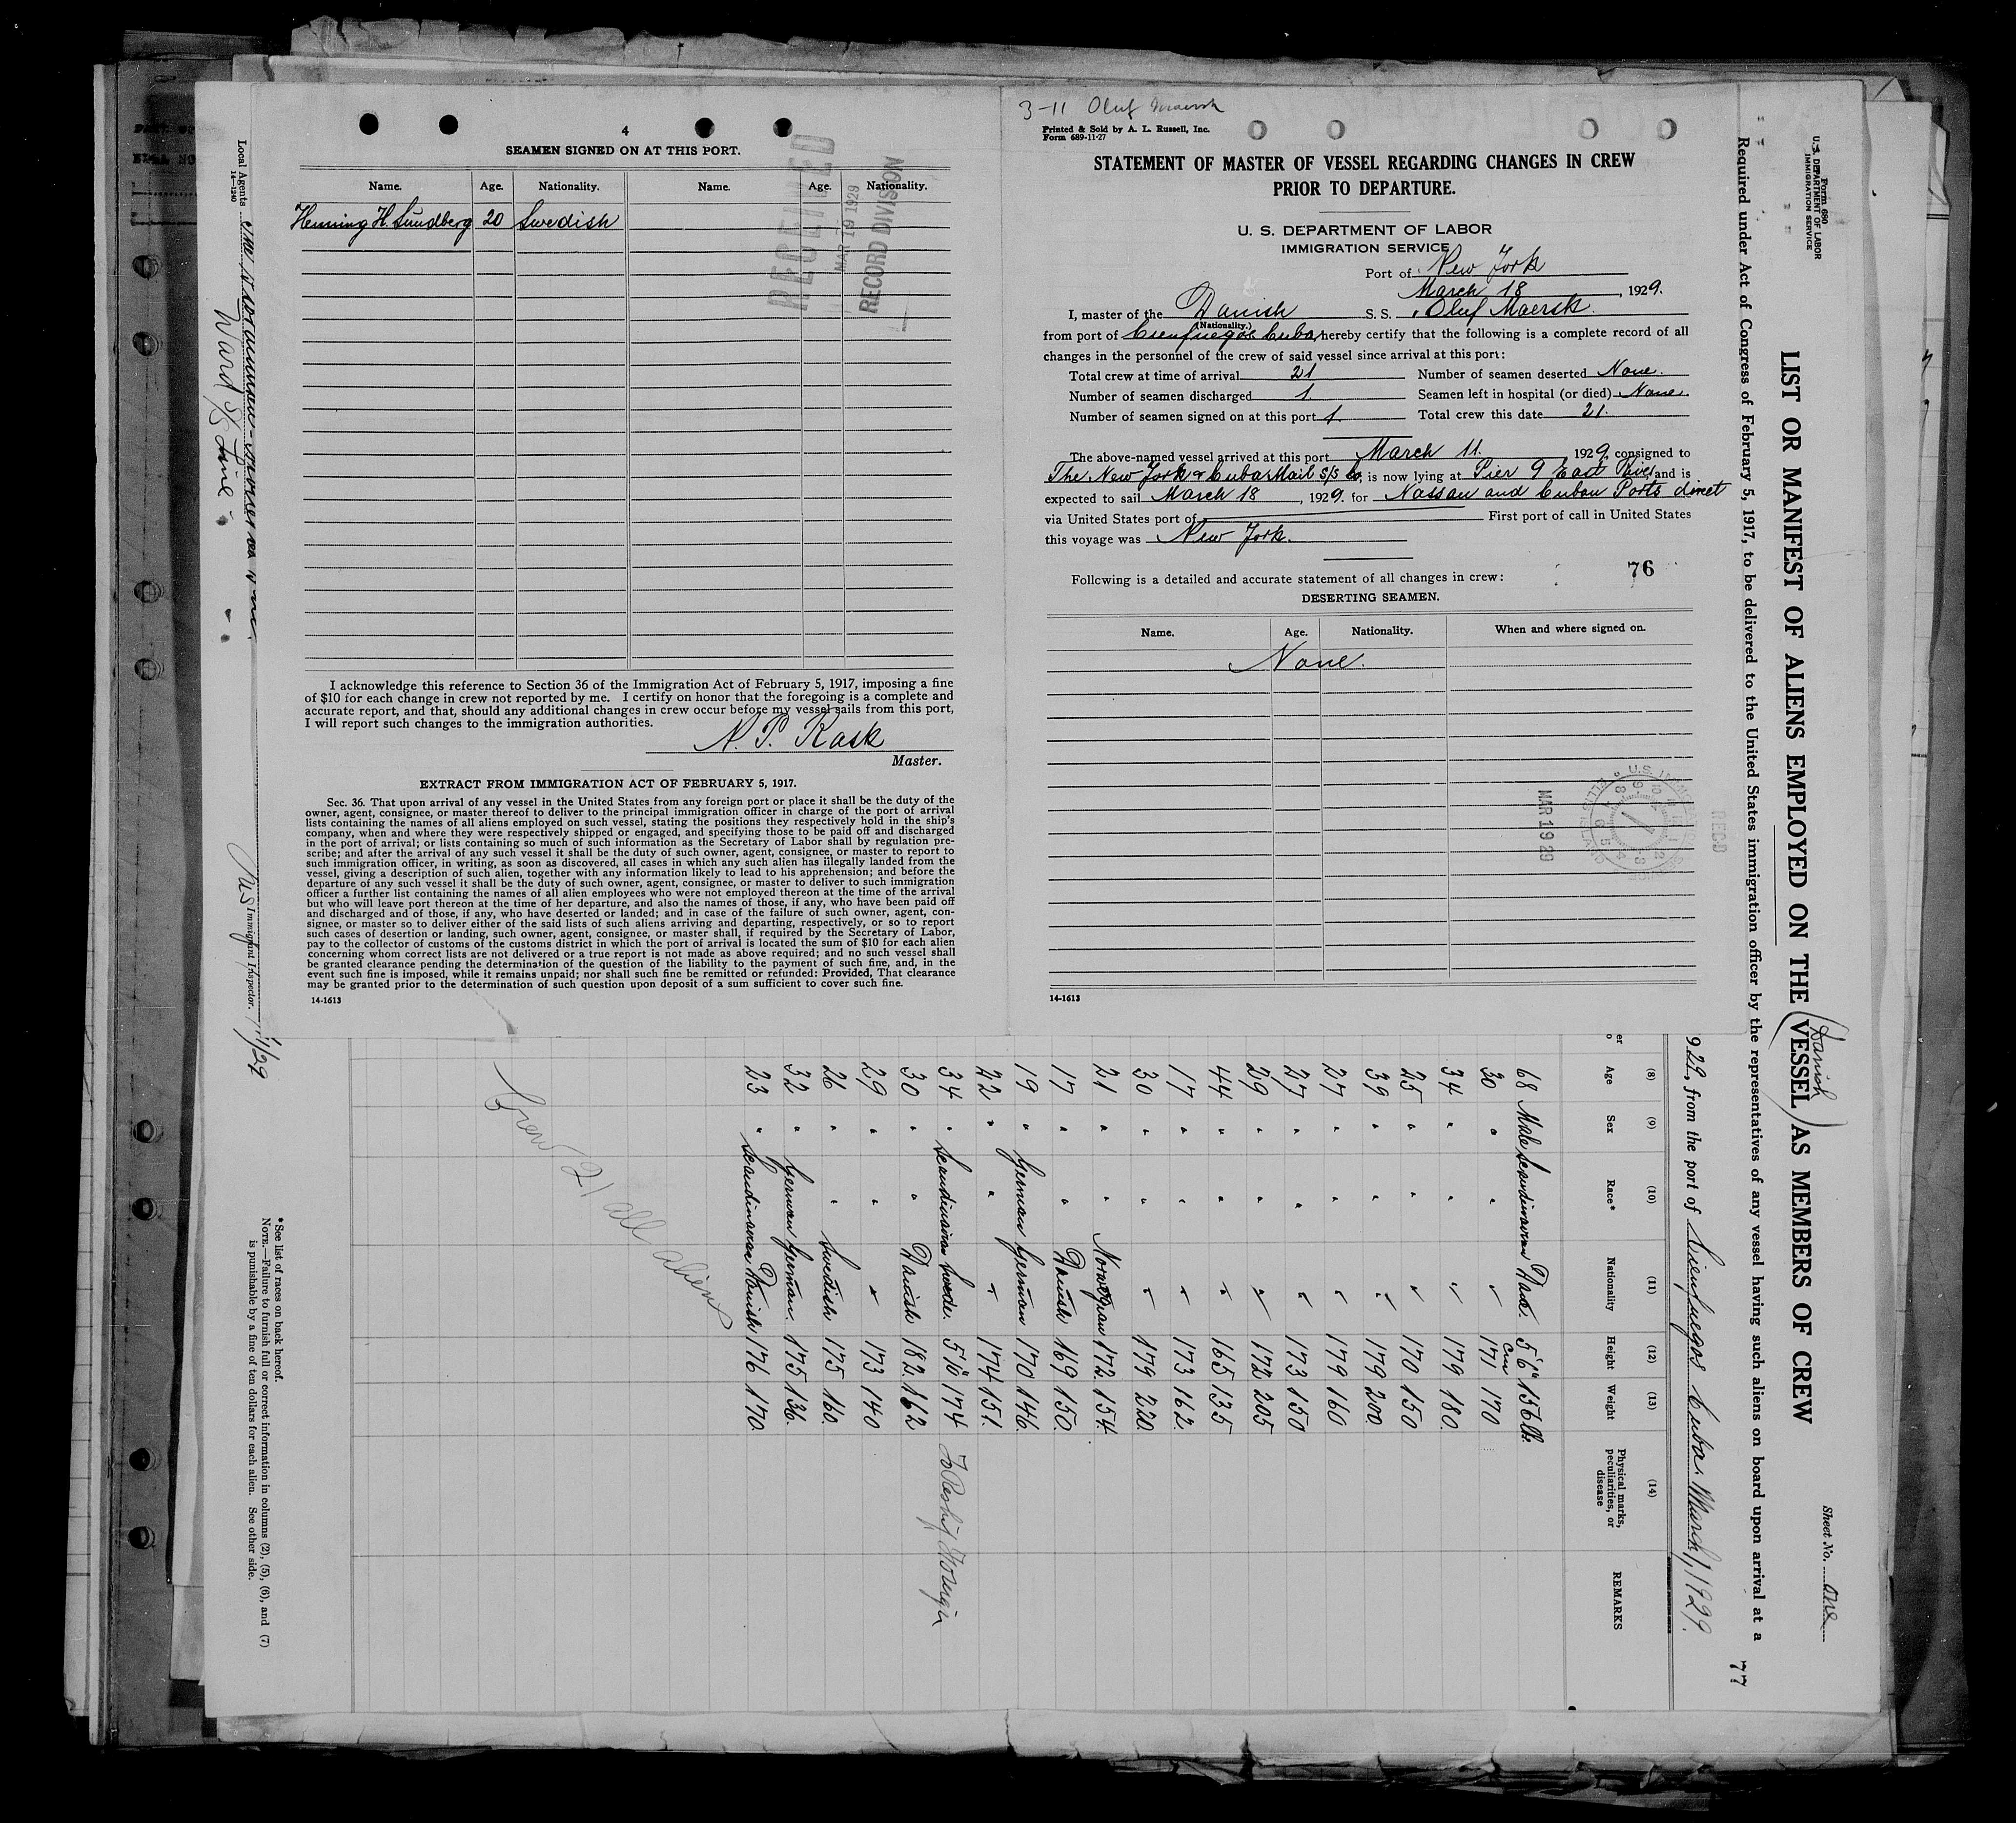 4
SEAMEN SIGNED ON AT THIS PORT.
Name. Age. Nationality. Name. Age. Nationality.
Henning H. Sundberg 20 Swedish
RECEIVED
MAR 19 1929
RECORD DIVISION
I acknowledge this reference to Section 36 of the Immigration Act of February 5, 1917, imposing a fine
of $10 for each change in crew not reported by me. I certify on honor that the foregoing is a complete and
accurate report, and that, should any additional changes in crew occur before my vessel sails from this port,
I will report such changes to the immigration authorities.
N. P. Rask
Master.
EXTRACT FROM IMMIGRATION ACT OF FEBRUARY 5, 1917.
Sec. 36. That upon arrival of any vessel in the United States from any foreign port or place it shall be the duty of the
owner, agent, consignee, or master thereof to deliver to the principal immigration officer in charge of the port of arrival
lists containing the names of all aliens employed on such vessel, stating the positions they respectively hold in the ship's
company, when and where they were respectively shipped or engaged, and specifying those to be paid off and discharged
in the port of arrival; or lists containing so much of such information as the Secretary of Labor shall by regulation pre-
scribe; and after the arrival of any such vessel it shall be the duty of such owner, agent, consignee, or master to report to
such immigration officer, in writing, as soon as discovered, all cases in which any such alien has illegally landed from the
vessel, giving a description of such alien, together with any information likely to lead to his apprehension; and before the
departure of any such vessel it shall be the duty of such owner, agent, consignee, or master to deliver to such immigration
officer a further list containing the names of all alien employees who were not employed thereon at the time of the arrival
but who will leave port thereon at the time of her departure, and also the names of those, if any, who have been paid off
and discharged and of those, if any, who have deserted or landed; and in case of the failure of such owner, agent, con-
signee, or master so to deliver either of the said lists of such aliens arriving and departing, respectively, or so to report
such cases of desertion or landing, such owner, agent, consignee, or master shall, if required by the Secretary of Labor,
pay to the collector of customs of the customs district in which the port of arrival is located the sum of $10 for each alien
concerning whom correct lists are not delivered or a true report is not made as above required; and no such vessel shall
be granted clearance pending the determination of the question of the liability to the payment of such fine, and, in the
event such fine is imposed, while it remains unpaid; nor shall such fine be remitted or refunded: Provided, That clearance
may be granted prior to the determination of such question upon deposit of a sum sufficient to cover such fine.
14-1613
3-11 Oluf Maersk
Printed & Sold by A. L. Russell, Inc.
Form 689-11-27
STATEMENT OF MASTER OF VESSEL REGARDING CHANGES IN CREW
PRIOR TO DEPARTURE.
U. S. DEPARTMENT OF LABOR
IMMIGRATION SERVICE
Port of New York
March 18, 1929.
I, master of the Danish S. S. Oluf Maersk.
(Nationality.)
from port of Cienfuegos Cuba, hereby certify that the following is a complete record of all
changes in the personnel of the crew of said vessel since arrival at this port:
Total crew at time of arrival 21 Number of seamen deserted None.
Number of seamen discharged 1 Seamen left in hospital (or died) None.
Number of seamen signed on at this port 1. Total crew this date 21.
The above-named vessel arrived at this port March 11. 1929, consigned to
The New York & Cuba Mail S/S Co, is now lying at Pier 9 East River, and is
expected to sail March 18, 1929. for Nassau and Cuban Ports direct
via United States port of First port of call in United States
this voyage was New York.
76
Following is a detailed and accurate statement of all changes in crew:
DESERTING SEAMEN.
Name. Age. Nationality. When and where signed on.
None.
MAR 19 29
REC'D
14-1613
Form 680
U. S. DEPARTMENT OF LABOR
IMMIGRATION SERVICE
Sheet No. one
LIST OR MANIFEST OF ALIENS EMPLOYED ON THE VESSEL AS MEMBERS OF CREW
Danish
Required under Act of Congress of February 5, 1917, to be delivered to the United States immigration officer by the representatives of any vessel having such aliens on board upon arrival at a
77
929, from the port of Cienfuegos Cuba. March, 1929.
(8) (9) (10) (11) (12) (13) (14)
Age Sex Race* Nationality Height Weight Physical marks, peculiarities, or disease REMARKS
68 Male Scandinavian Dane. 5'6" 156 lb.
cm
30 " " " 171 170
34 " " " 179 180.
25 " " " 170 150
39 " " " 179 200.
27 " " " 179 160
27 " " " 173 150
29 " " " 172 205
44 " " " 165 135
17 " " " 173 162.
30 " " " 179 220.
21 " " Norwegian 172. 154
17 " " Danish 169 150.
19 " German German 170 146.
22 " " " 174 151.
34 " Scandinavian Swede. 5'10" 174
30 " " Danish 182. 162
29 " " " 173 140
26 " " Swedish 175 160.
32 " German German. 175 136.
23 " Scandinavian Danish 176 170.
Crew 21 all aliens
Local Agents
14-1240
Ward S/S Line
Immigrant Inspector.
*See list of races on back hereof.
NOTE.—Failure to furnish full or correct information in columns (2), (5), (6), and (7)
is punishable by a fine of ten dollars for each alien. See other side.